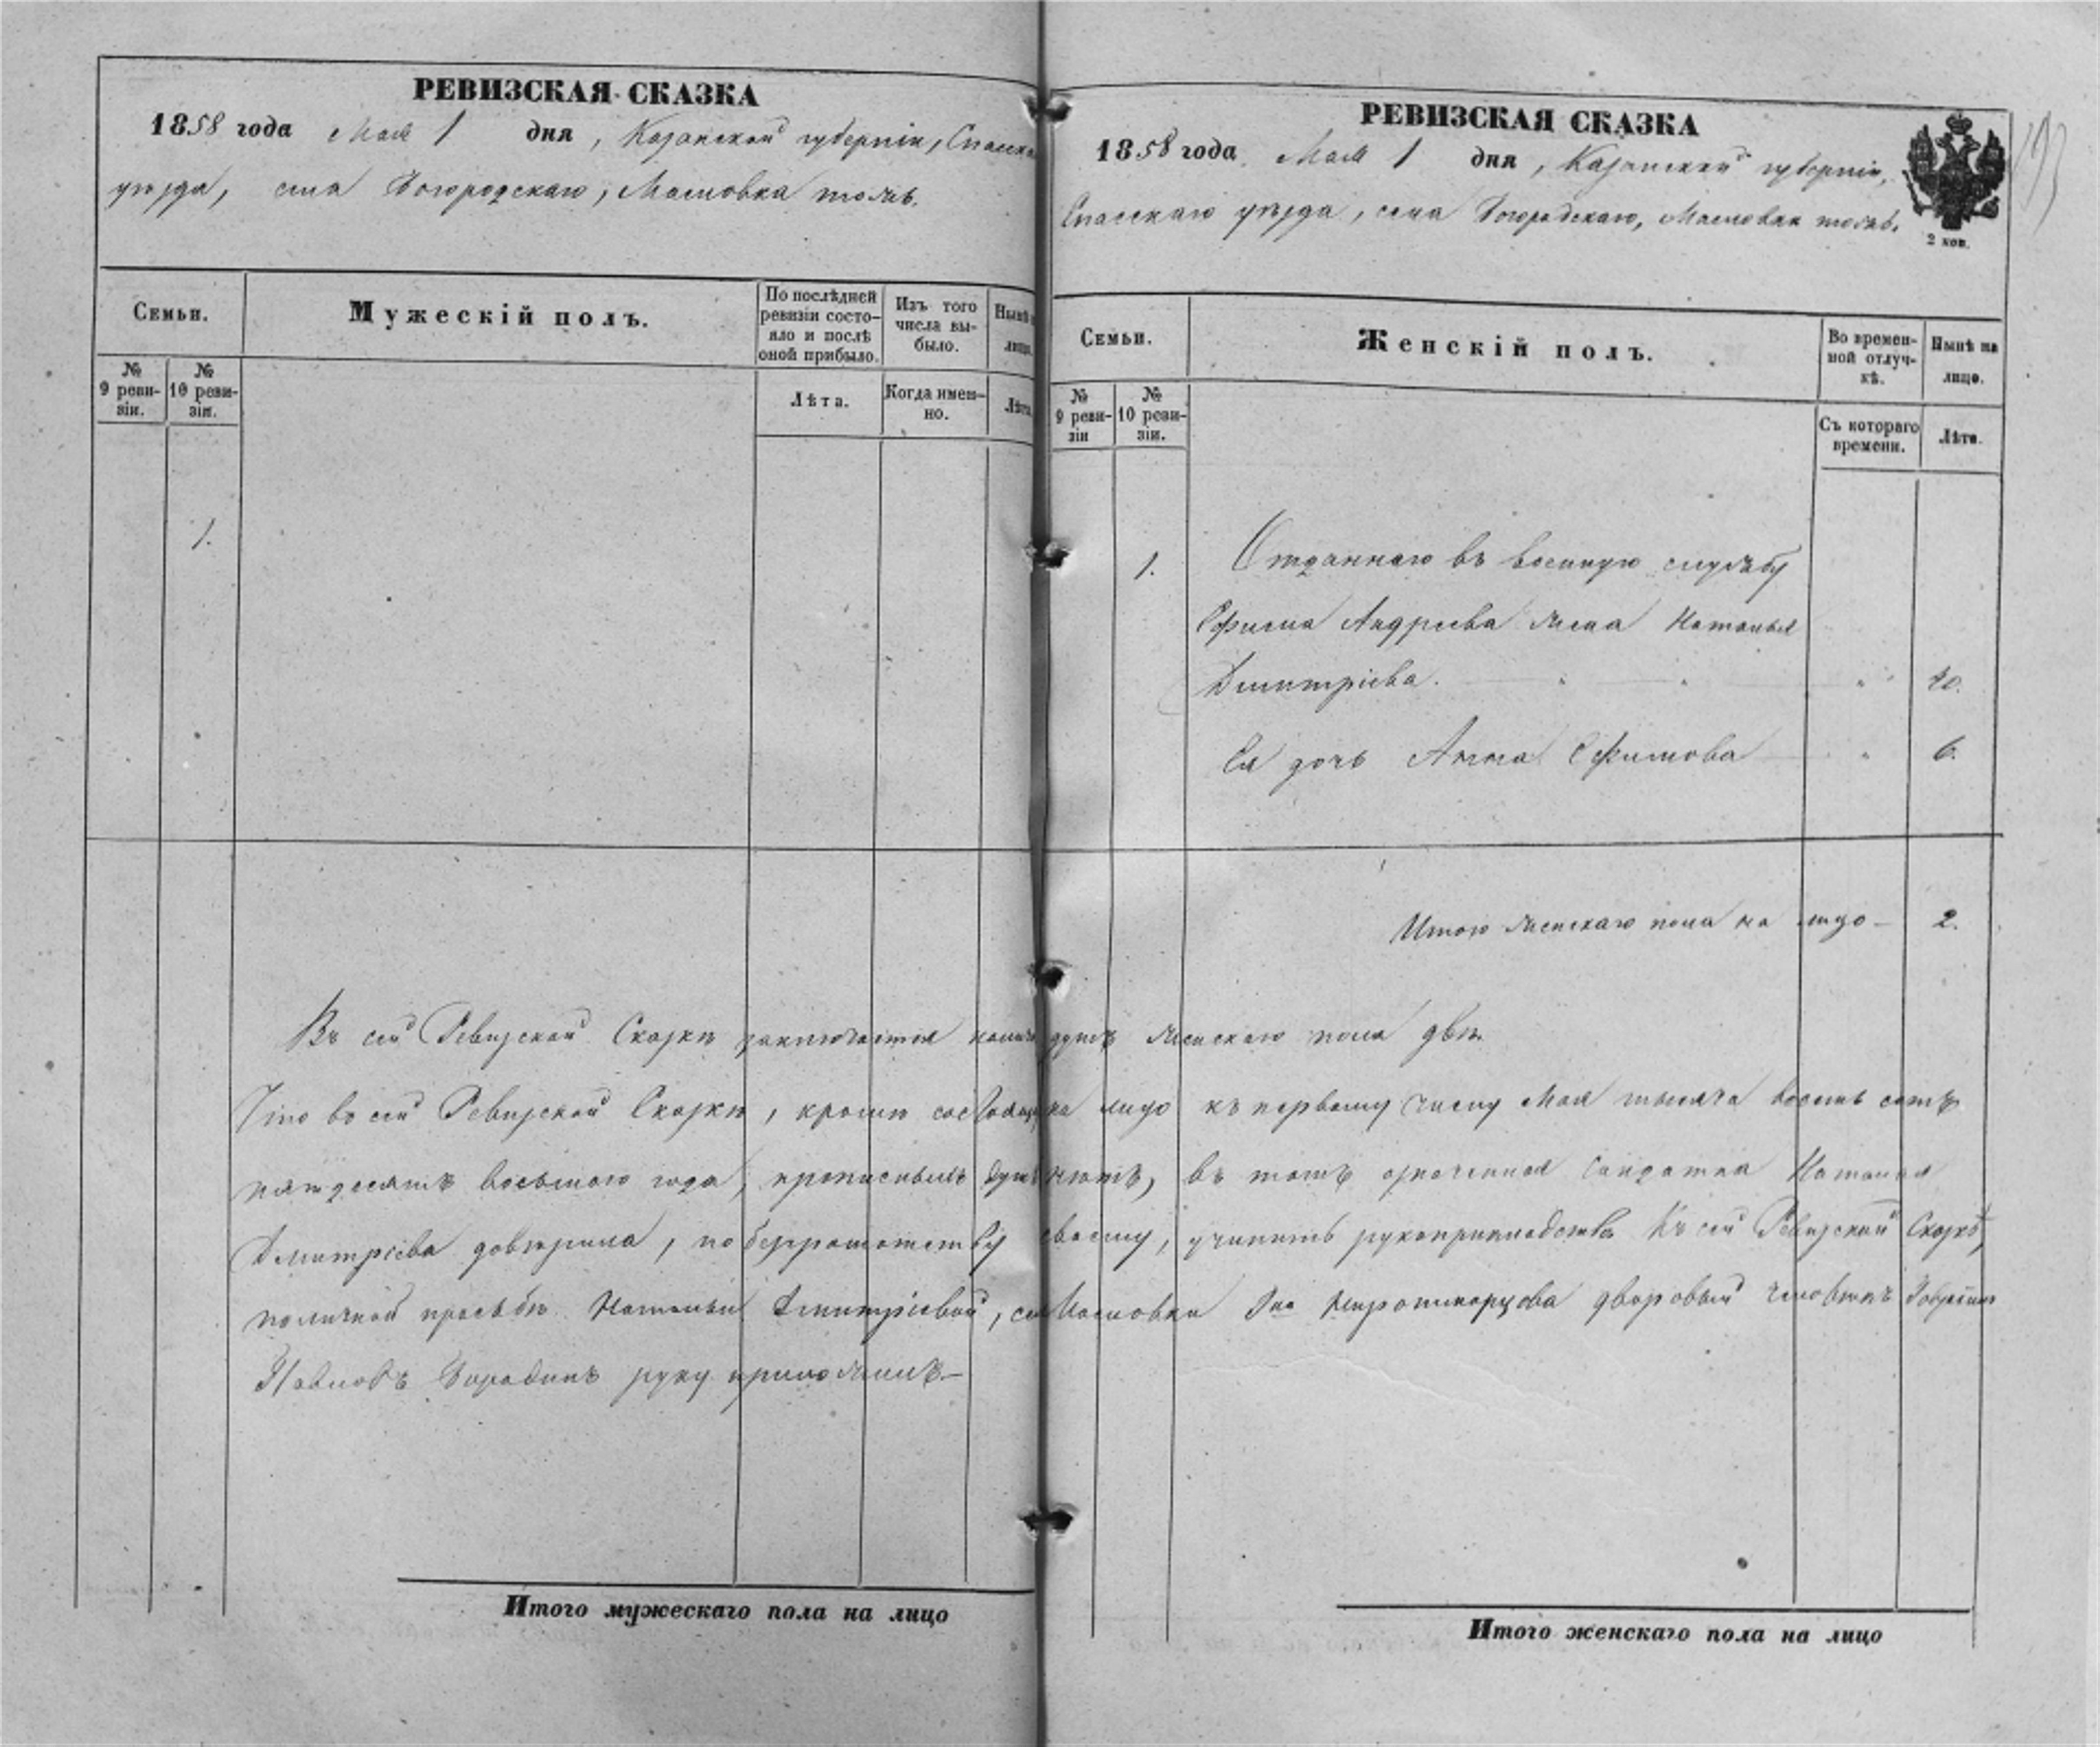 РЕВИЗСКАЯ СКАЗКА
1858 года Мая 1 дня, Казанской губерніи, Спасска
уѣзда, села Богородскаго, Масловка тожъ.
Семьи.
Мужескій полъ.
По послѣдней ревизіи состо-
яло и послѣ оной прибыло.
Изъ того числа вы-
было.
Нынѣ
лицо.
№ 9 реви-
зіи.
№ 10 реви-
зіи.
Лѣта.
Когда имен-
но.
Лѣта.
1.
РЕВИЗСКАЯ СКАЗКА
1858 года Мая 1 дня, Казанской губерніи,
Спасскаго уѣзда, села Богородскаго, Масловка тожъ.
2 коп.
193
Семьи.
Женскій полъ.
Во времен-
ной отлуч-
кѣ.
Нынѣ на лицо.
№ 9 реви-
зіи
№ 10 реви-
зіи.
Съ котораго времени.
Лѣта.
1.
Отданнаго въ военную службу
Ефима Андреева жена Наталья
Дмитріева. " 20.
Ея дочь Анна Ефимова " 6.
Итого женскаго пола на лицо - 2.
Въ сей Ревизской Сказкѣ заключается налич душъ женскаго пола двѣ.
Что во сей Ревизской Сказкѣ, кромѣ состоящ на лицо къ первому числу Мая тысяча восемь сотъ
пятдесятъ восьмого года, прописныхъ душъ нѣтъ, въ томъ означенная Солдатка Наталья
Дмитріева довѣрила, по безграмотству своему, учинить рукоприкладство. Къ сей Ревизской Сказкѣ,
по личной просьбѣ Натальи Дмитріевой, сел Масловки Гна дворовый человѣкъ
Павловъ Бородинъ руку приложилъ-
Итого мужескаго пола на лицо
Итого женскаго пола на лицо